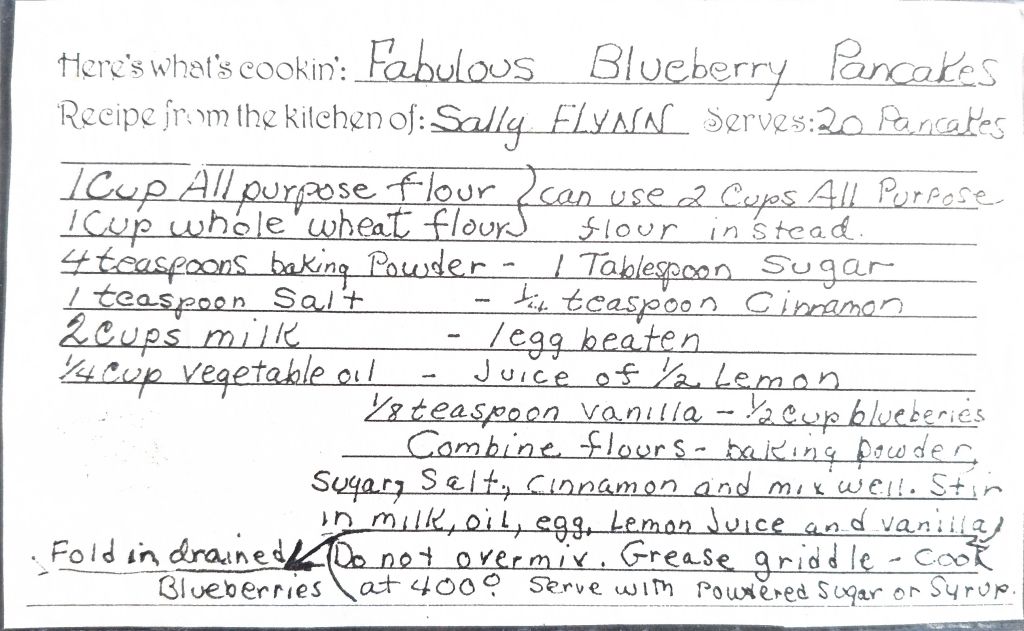 Here's what's cookin': Fabulous Blueberry Pancakes
Recipe from the kitchen of: Sally FLYNN Serves: 20 Pancakes
1 Cup All purpose flour } can use 2 Cups All Purpose
1 Cup whole wheat flour } flour instead.
4 teaspoons baking Powder - 1 Tablespoon Sugar
1 teaspoon Salt - 1/4 teaspoon Cinnamon
2 Cups milk - 1 egg beaten
1/4 cup vegetable oil - Juice of 1/2 Lemon
1/8 teaspoon vanilla - 1/2 cup blueberies
Combine flours - baking powder,
Sugar, Salt, cinnamon and mix well. Stir
in milk, oil, egg, Lemon Juice and vanilla
Fold in drained Do not overmix. Grease griddle - Cook
Blueberries at 400° Serve with Powdered Sugar or Syrup.